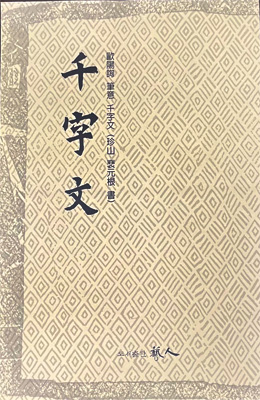 千字文
歐陽詢 筆意 千字文 (珍山 裵元根 書)
도서출판 藝人